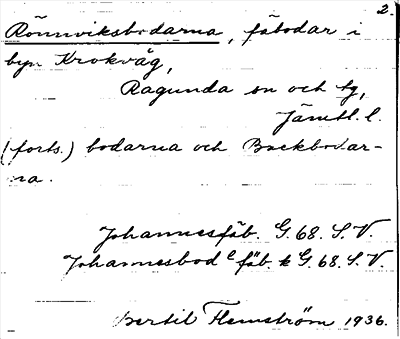 2.
Rönnviksbodarna, fäbodar i
byn Krokvåg,
Ragunda sn och tg,
Jämtl. l.
(forts.) bodarna och Backbodar-
na.
Johannesfäb. G. 68. S. V.
Johannesbod fäb. k G. 68. S. V.
Bertil Flemström 1936.